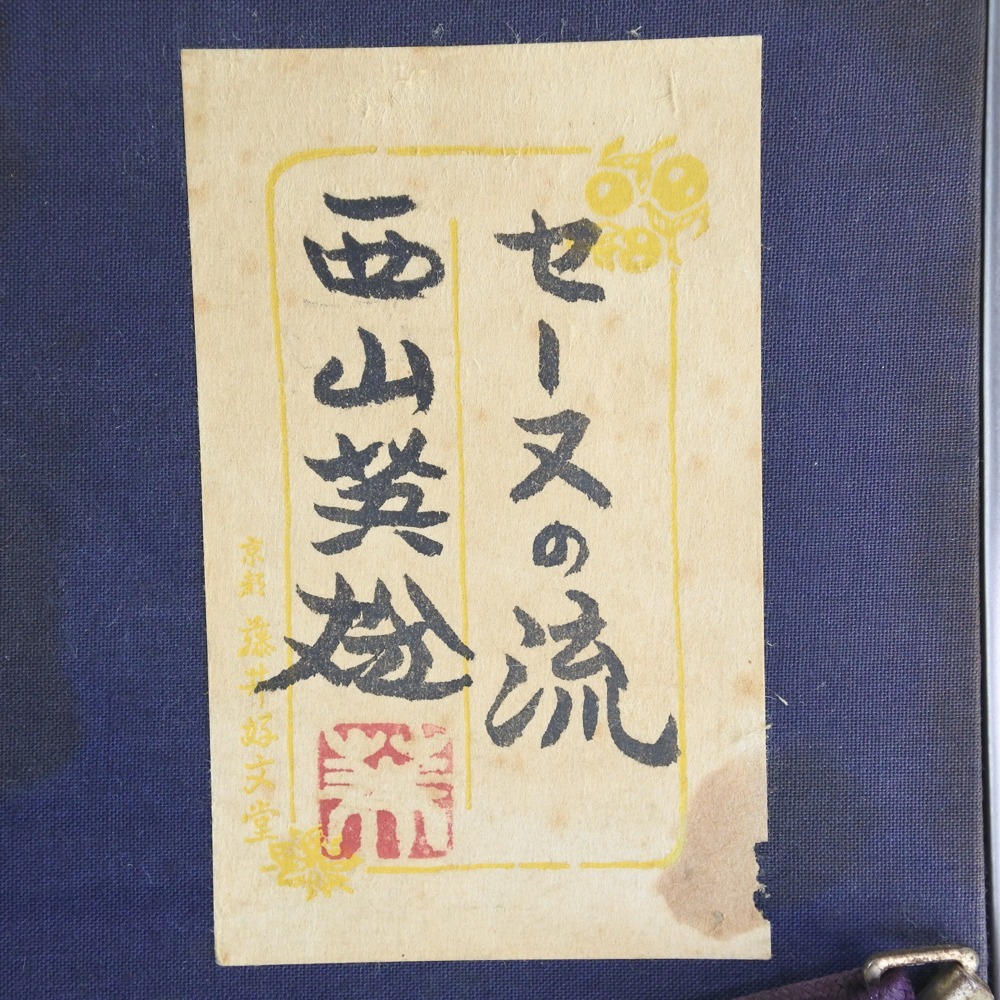 セーヌの流
西山英雄
京都 藤井好文堂